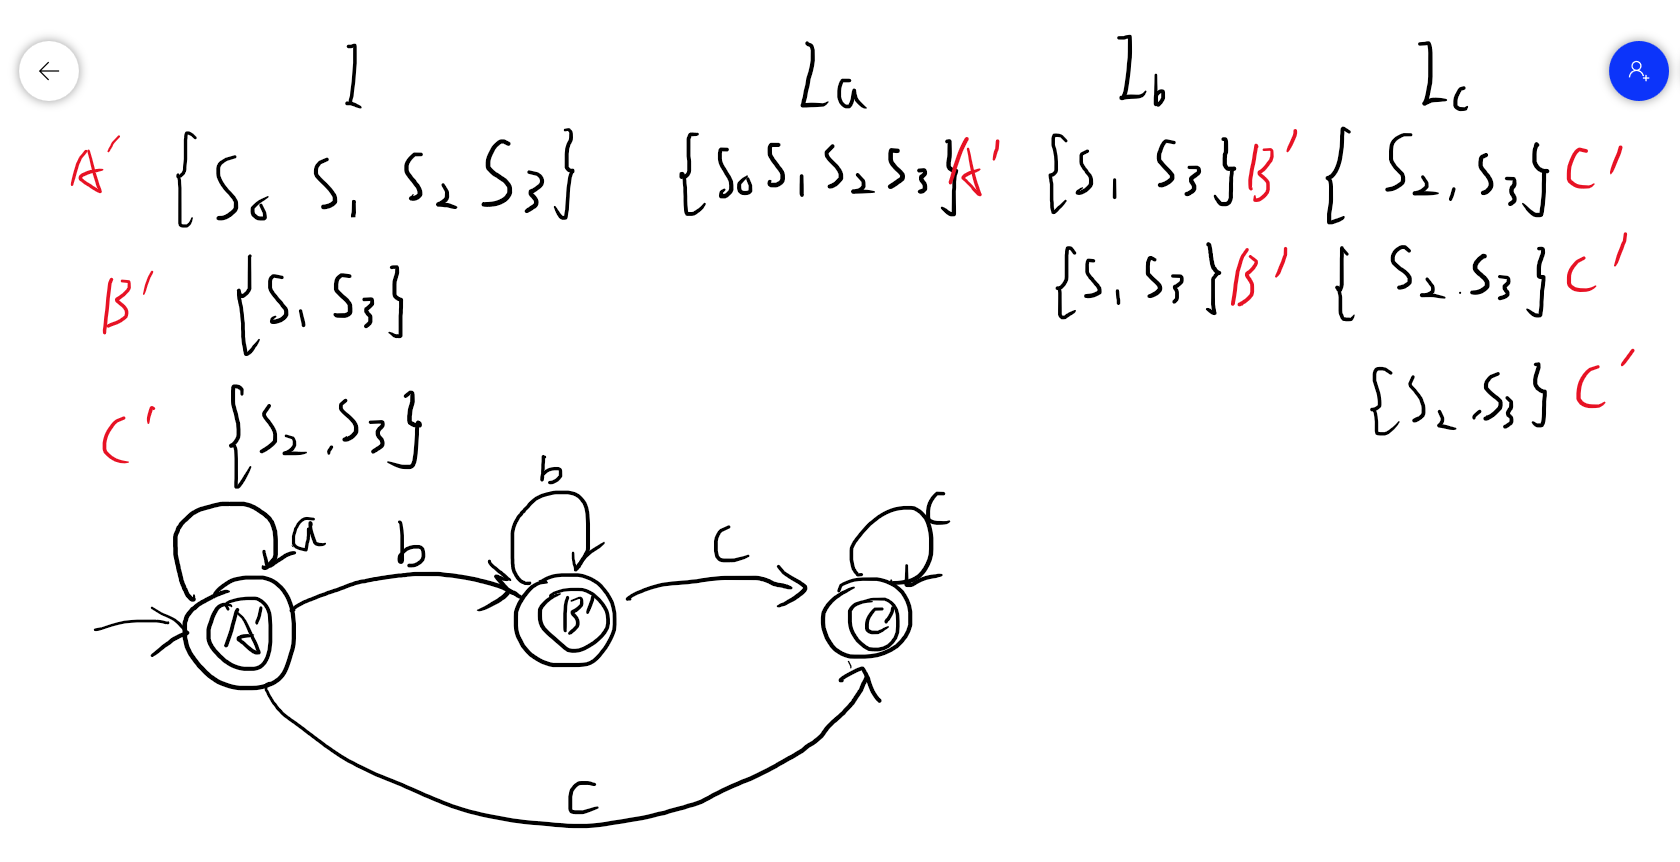 I Ia Ib Ic
A' {S0 S1 S2 S3} {S0 S1 S2 S3} A' {S1 S3} B' {S2, S3} C'
B' {S1 S3} {S1 S3} B' {S2 . S3} C'
C' {S2 . S3} {S2 . S3} C'
a b b c c
A' B' C'
c